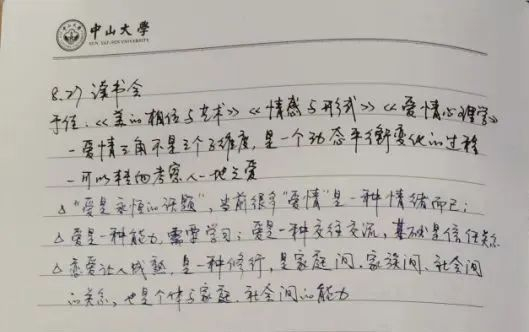 中山大學
SUN YAT-SEN UNIVERSITY
8.27 读书会
于佳:《美的相位与艺术》《情感与形式》《爱情心理学》
-爱情三角不是三个维度,是一个动态平衡变化的过程
-可以转向考察人-地之爱
△"爱是永恒的话题",当前很多"爱情"是一种情绪而已;
△爱是一种能力,需要学习;爱是一种交往交流,基础是信任关系
△恋爱让人成熟,是一种修行,是家庭间、家族间、社会间
的关系,也是个体与家庭、社会间的能力